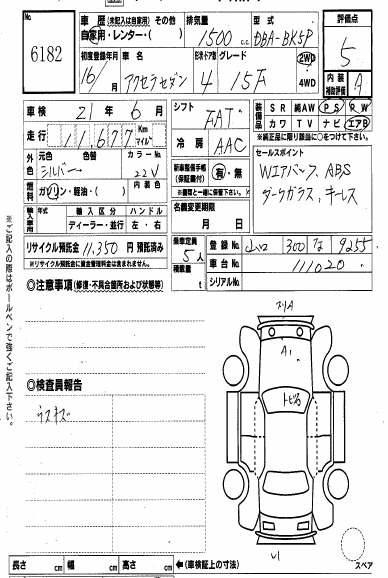 No.
6182
車歴 (未記入は自家用) その他
自家用・レンター・( )
排気量
1500 c.c.
型式
DBA-BK5P
評価点
5
初度登録年月
16/ 月
車名
アクセラセダン
ドア数
4
グレード
15F
2WD
4WD
内装
補助評価
A
車検 21年 6月
シフト
FAT
装備品
SR 純AW PS PW
カワ TV ナビ エアB
※純正品に限り該当に○をつけて下さい
走行 11,677 Km
マイル
冷房
AAC
セールスポイント
外色
元色 色替
シルバー
カラーNo.
22V
新車整備手帳
(保証書付)
有・無
※書類と一緒に保管下さい。
Wエアバック、ABS
ダークガラス、キーレス
燃料
ガソリン・軽油・( )
内装色
名義変更期限
月 日
輸入車
年式
輸入区分
ディーラー・並行
ハンドル
左・右
リサイクル預託金 11,350 円 預託済み
※リサイクル預託金に資金管理料金は含まれません。
乗車定員
5人
積載量
t
登録No. 山口 300 な 9255
車台No. 111020
シリアルNo.
◎注意事項 (修復・不具合箇所および状態等)
◎検査員報告
ウスキズ
A1
トビ石
※ご記入の際はボールペンで強くご記入下さい。
長さ cm 幅 cm 高さ cm ←(車検証上の寸法)
スペア